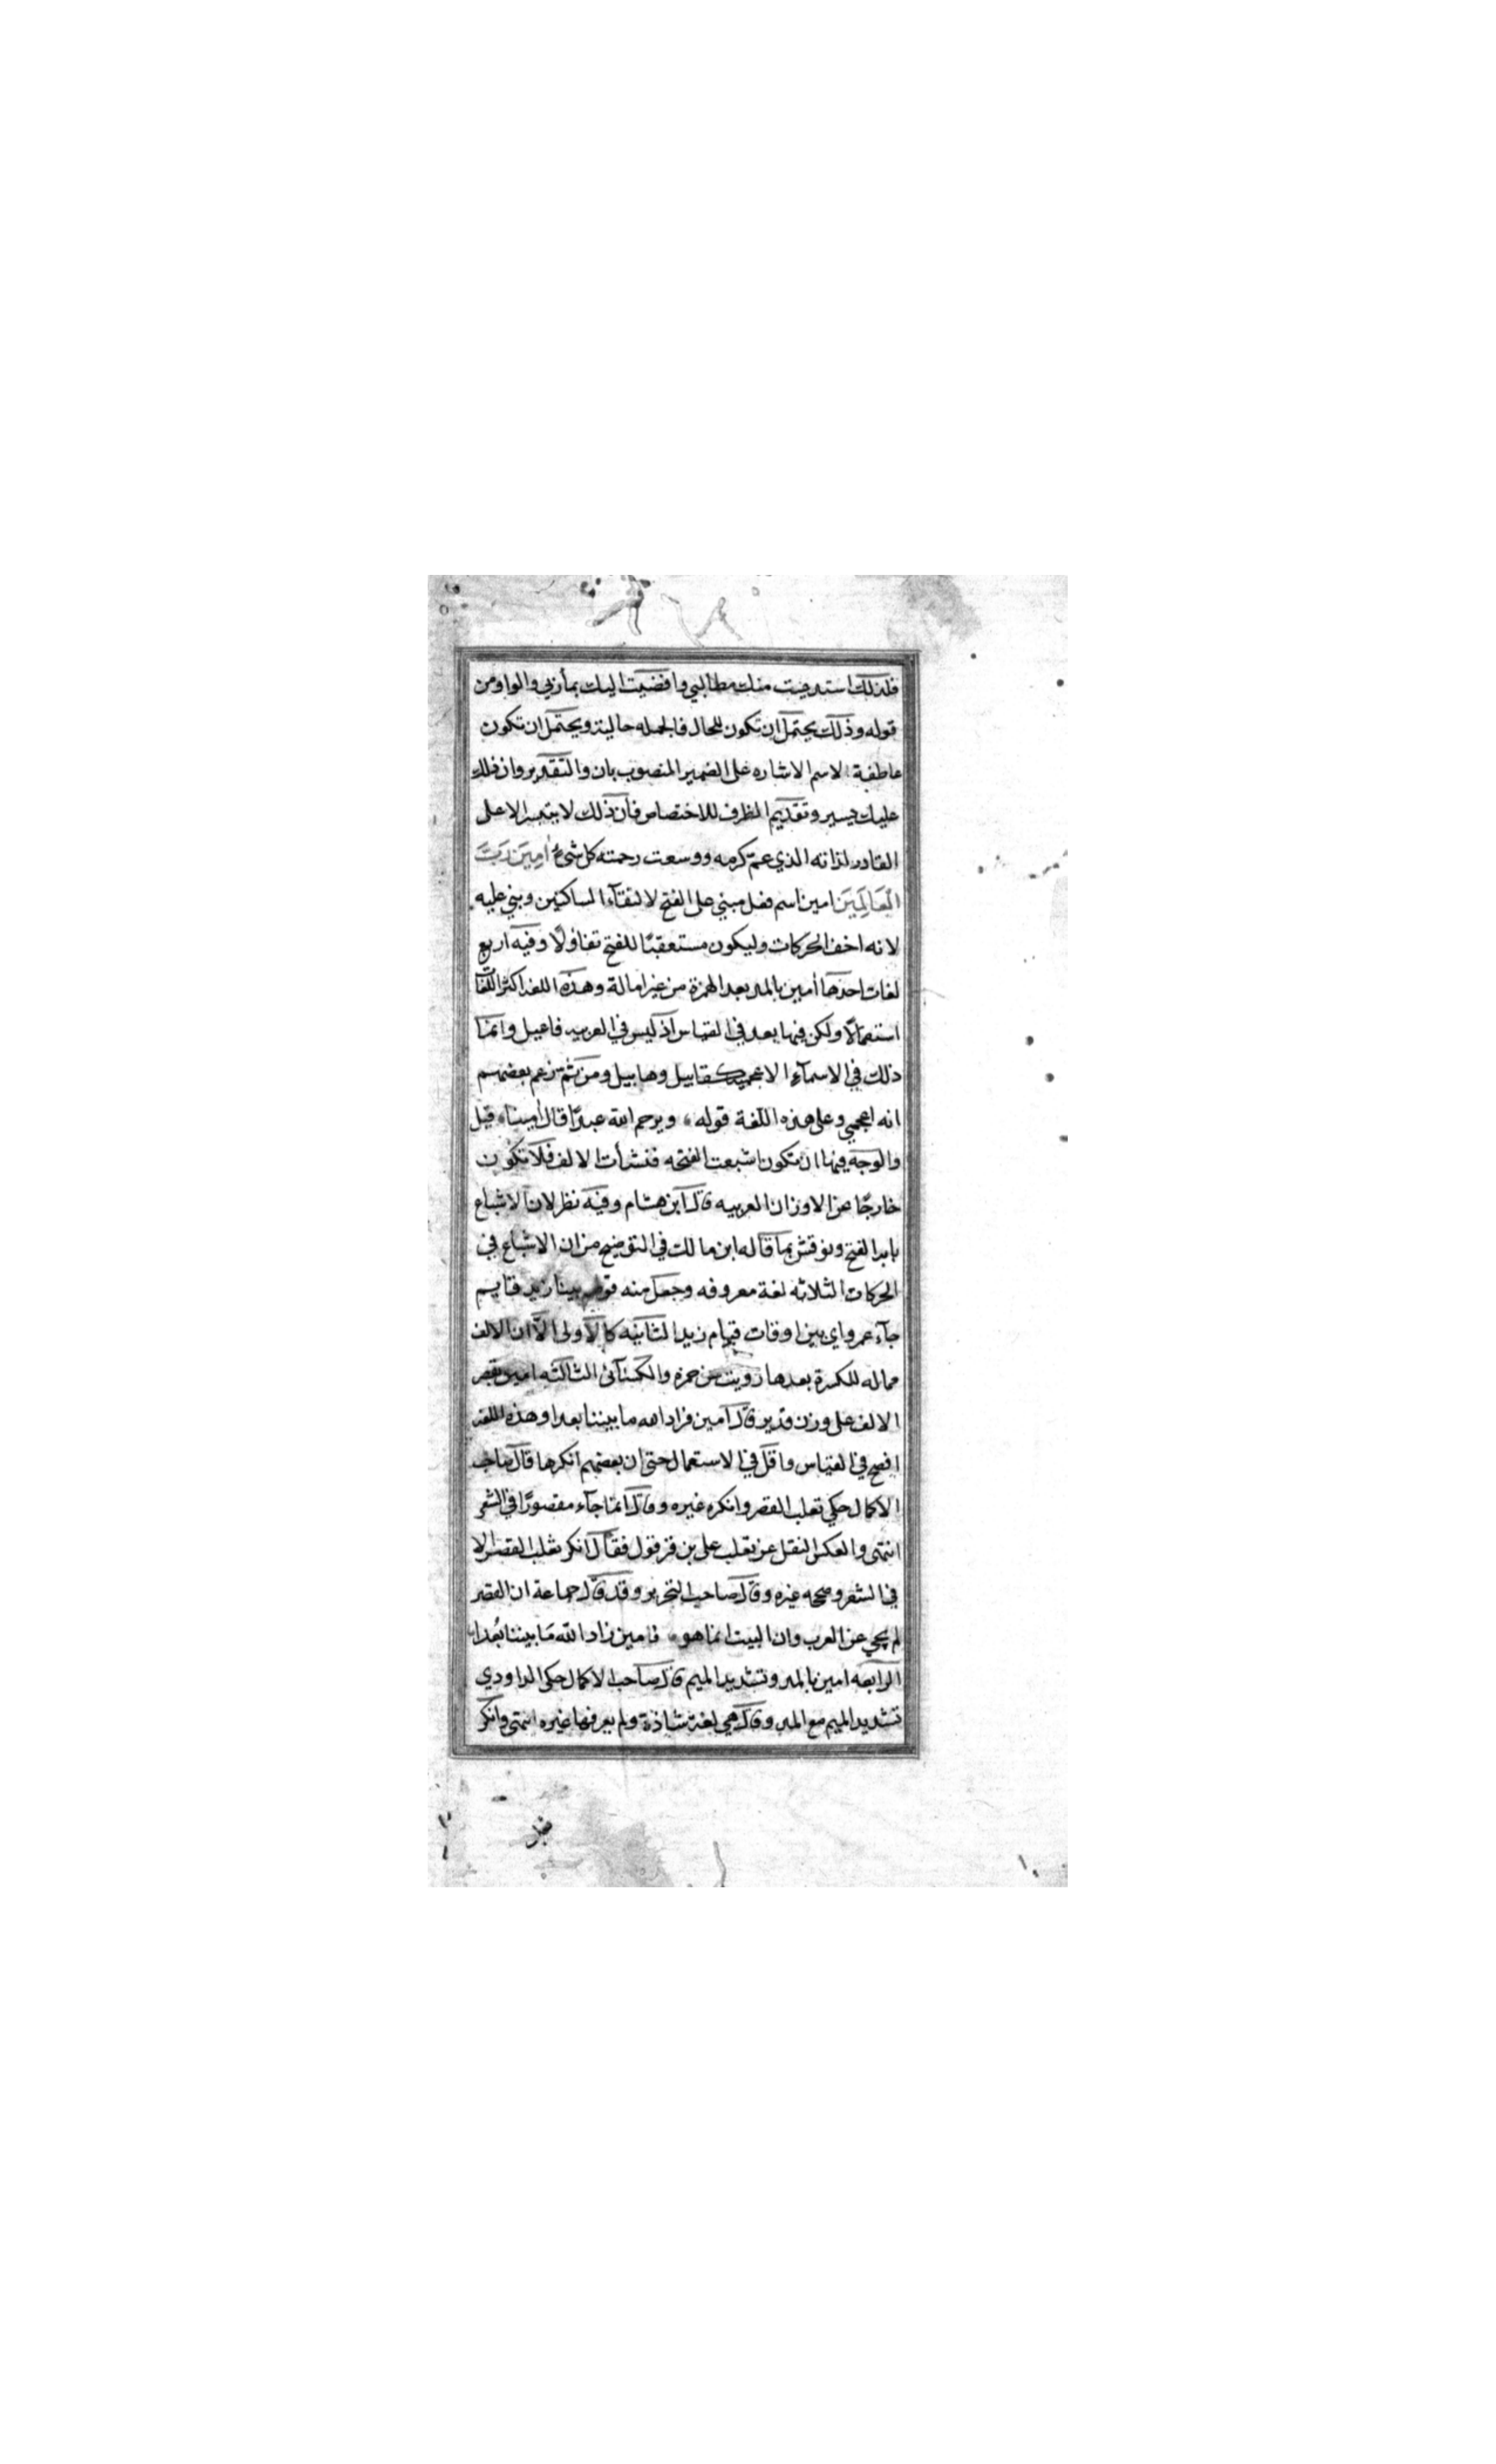 فلذلك استدعيت منك مطالبي وافضيت اليك بمأربي والواو من
قوله وذلك يحتمل ان تكون للحال فالجمله حالية ويحتمل ان تكون
عاطفة لاسم الاشاره على الضمير المنصوب بان والتقدير وان ذلك
عليك يسير وتقديم الظرف للاختصاص فان ذلك لا يتيسر الا على
القادر لذاته الذي عم كرمه ووسعت رحمته كل شئ امِينَ رَبَّ
الْعَالَمِيَن امين اسم فعل مبني على الفتح لالتقآء الساكنين وبني عليه
لانه اخف الحركات وليكون مستعقبًا للفتح تفاؤلًا وفيه اربع
لغات احدها أمين بالمد بعد الهمزة من غير امالة وهذه اللغه اكثر اللغات
استعمالًا ولكن فيها بعد في القياس اذ ليس في العربيه فاعيل وانما
ذلك في الاسمآء الاعجميه كقابيل وهابيل ومن ثم زعم بعضهم
انه اعجمي وعلى هذه اللغة قوله ، ويرحم الله عبدًا قال امينا ، قيل
والوجه فيها ان تكون اشبعت الفتحه فنشأت الالف فلا تكون
خارجًا عن الاوزان العربيه قال ابن هشام وفيه نظر لان الاشباع
بابه الفتح ونوقش بما قاله ابن مالك في التوضيح من ان الاشباع في
الحركات الثلاثه لغة معروفه وجعل منه قولهم بينا زيد قايم
جآء عمرو اي بين اوقات قيام زيد الثانيه كالاولى الا ان الالف
مماله للكسرة بعدها رويت عن حمزه والكسآئى الثالثه امين بقصر
الالف على وزن قدير قال آمين فزاد الله ما بيننا بعدا وهذه اللغه
افصح في القياس واقل في الاستعمال حتى ان بعضهم انكرها قال صاحب
الاكمال حكي ثعلب القصر وانكره غيره وقال انما جآء مقصورًا في الشعر
انتهى والعكس النقل عن ثعلب على بن قرقول فقال انكر ثعلب القصر الا
في الشعر وصححه غيره وقال صاحب التحرير وقد قال جماعة ان القصر
لم يجي عن العرب وان البيت انما هو ، فامين زاد الله مَا بيننا بُعدا
الرابعه امين بالمد وتشديد الميم قال صاحب الاكمال حكى الداودي
تشديد الميم مع المد وقال هي لغة شاذة ولم يعرفها غيره انتهى وانكر